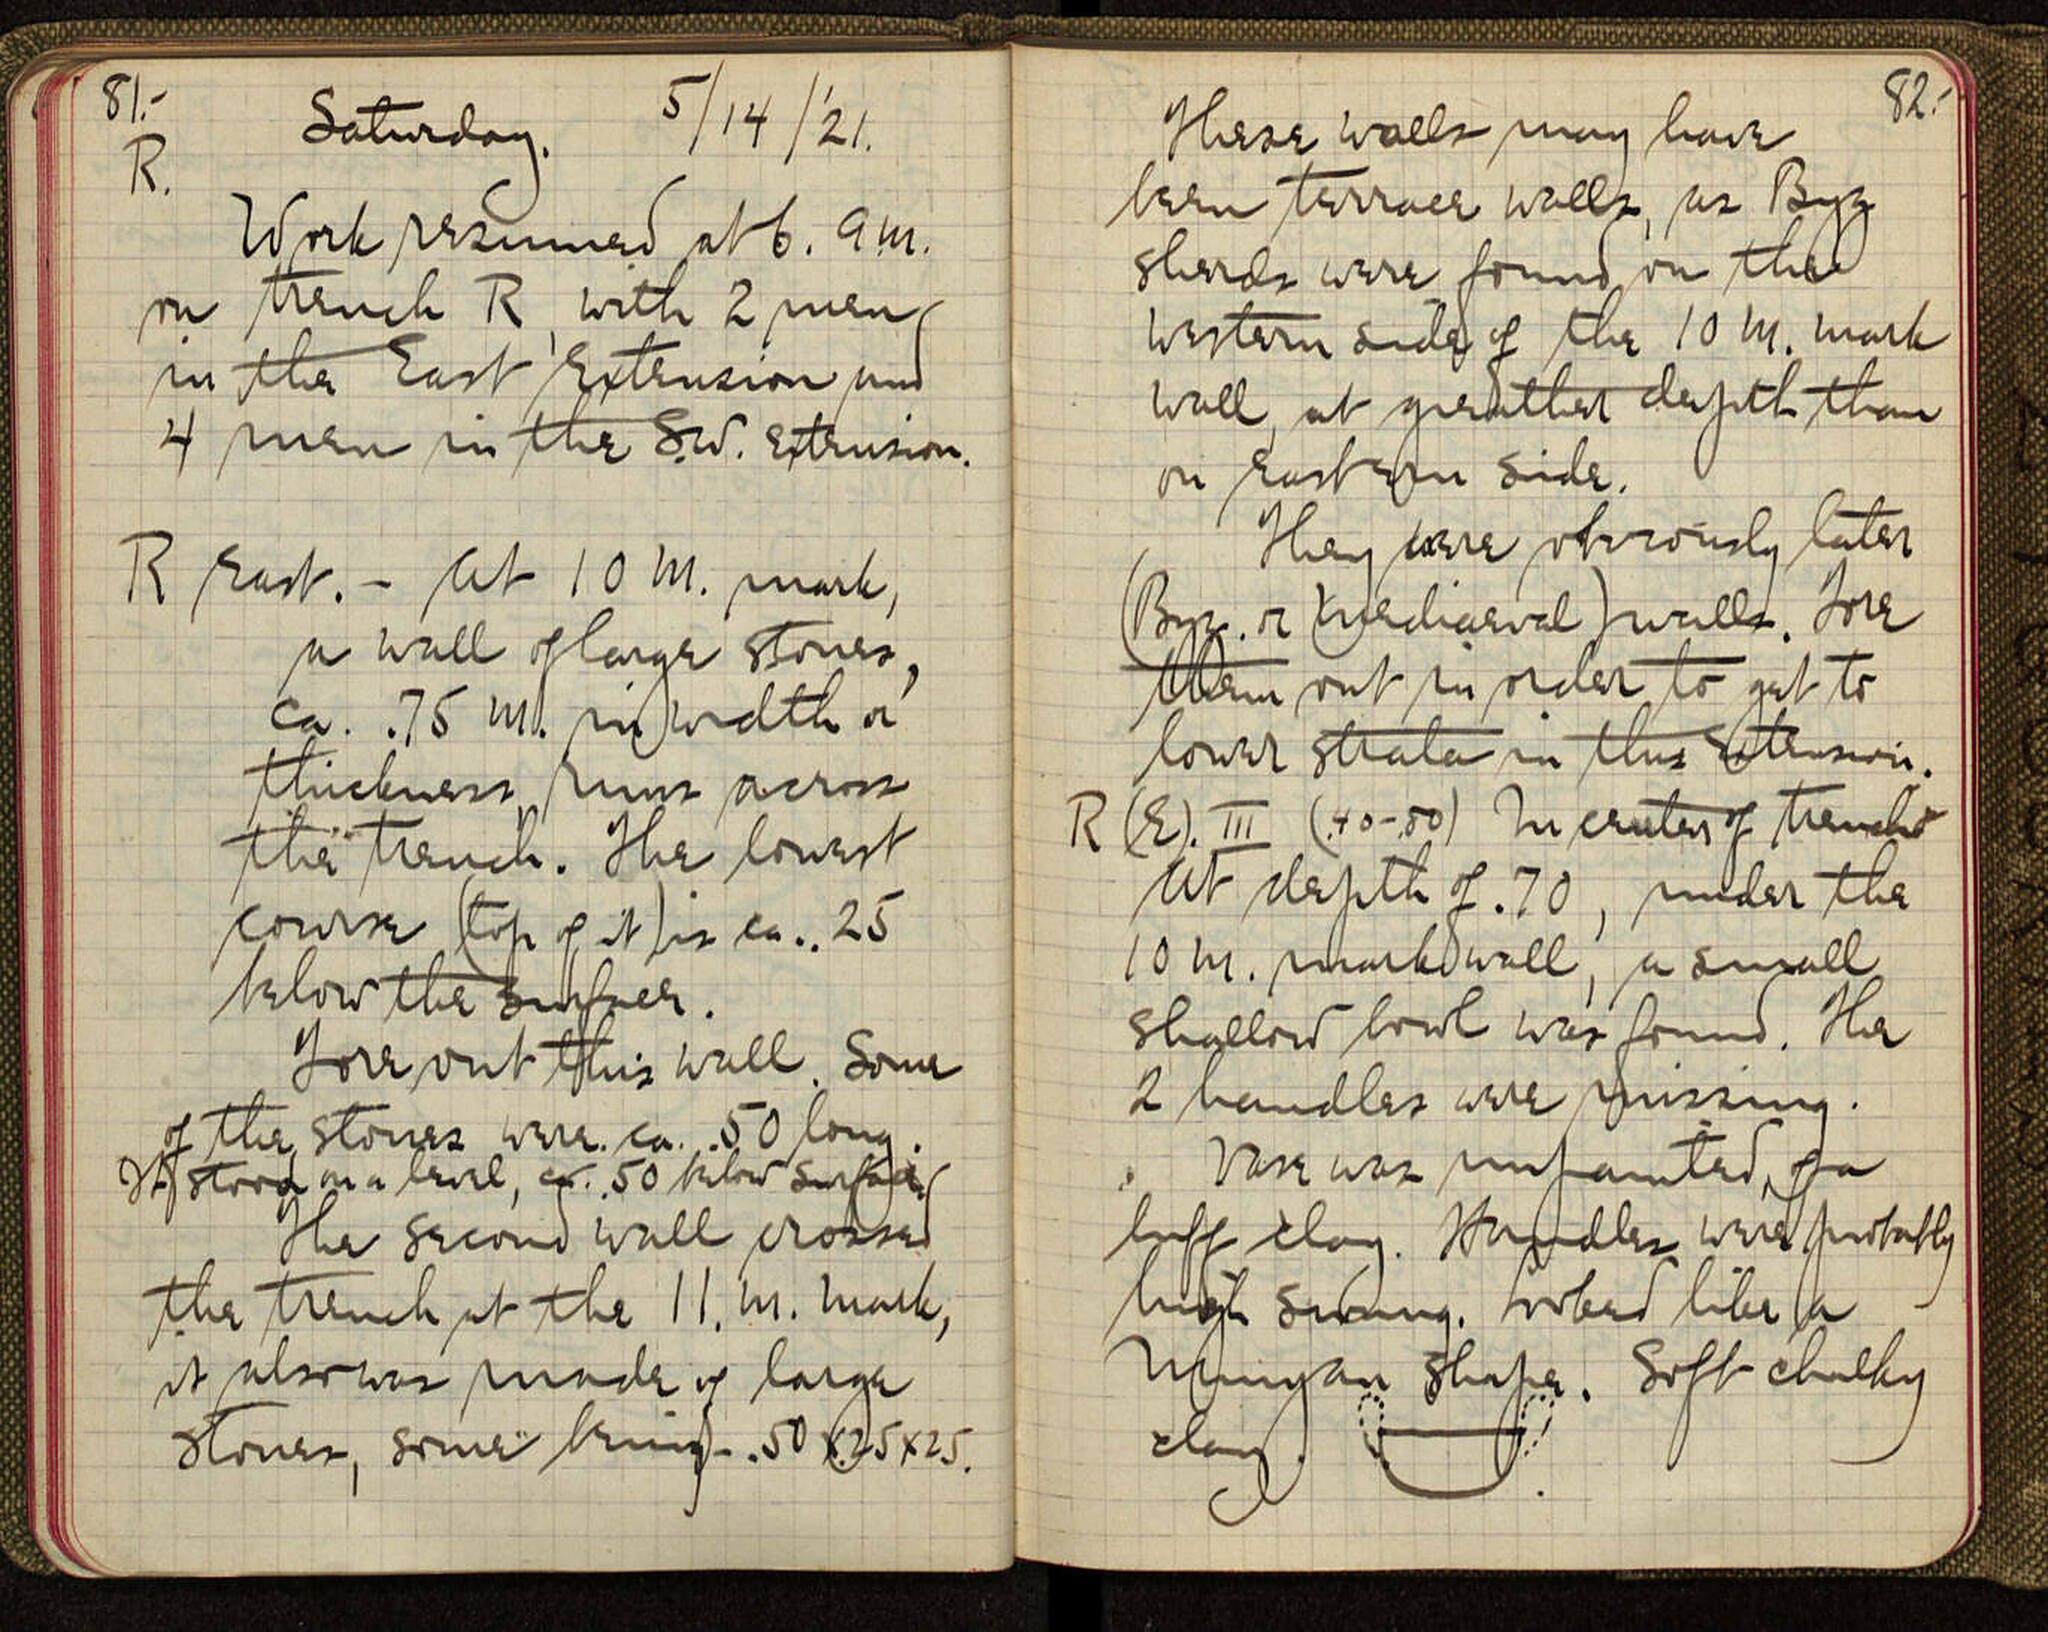 81.-
Saturday. 5/14/'21.
R.
Work resumed at 6. a.m.
on trench R, with 2 men
in the East Extension and
4 men in the S.W. Extension.
R East. - At 10 M. mark,
a wall of large stones,
ca. .75 M. in width or
thickness, runs across
the trench. The lowest
course (top of it) is ca. .25
below the surface.
Tore out this wall. Some
of the stones were ca. .50 long.
It stood on a level, ca. .50 below surface
The second wall crossed
the trench at the 11. M. mark,
it also was made of large
stones, some being - .50 x .25 x 25.
82.-
These walls may have
been terrace walls, as Byz
sherds were found on the
western side of the 10 M. mark
wall, at greather depth than
on eastern side.
They were obviously later
(Byz. or mediaeval) walls. Tore
them out in order to get to
lower strata in this Extension.
R (E). III (.40-.80) In center of trench
At depth of .70, under the
10 M. mark wall, a small
shallow bowl was found. The
2 handles were missing.
Vase was unpainted, of a
buff clay. Handles were probably
high swung. looked like a
Minyan shape. Soft chalky
clay.